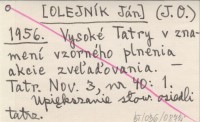 [OLEJNÍK Ján] (J.O.)
1956. Vysoké Tatry v zna-
mení vzorného plnenia
akcie zveľaďovania. —
Tatr. Nov. 3, nr 40: 1.
Upiększanie słow. osiedli
tatrz.